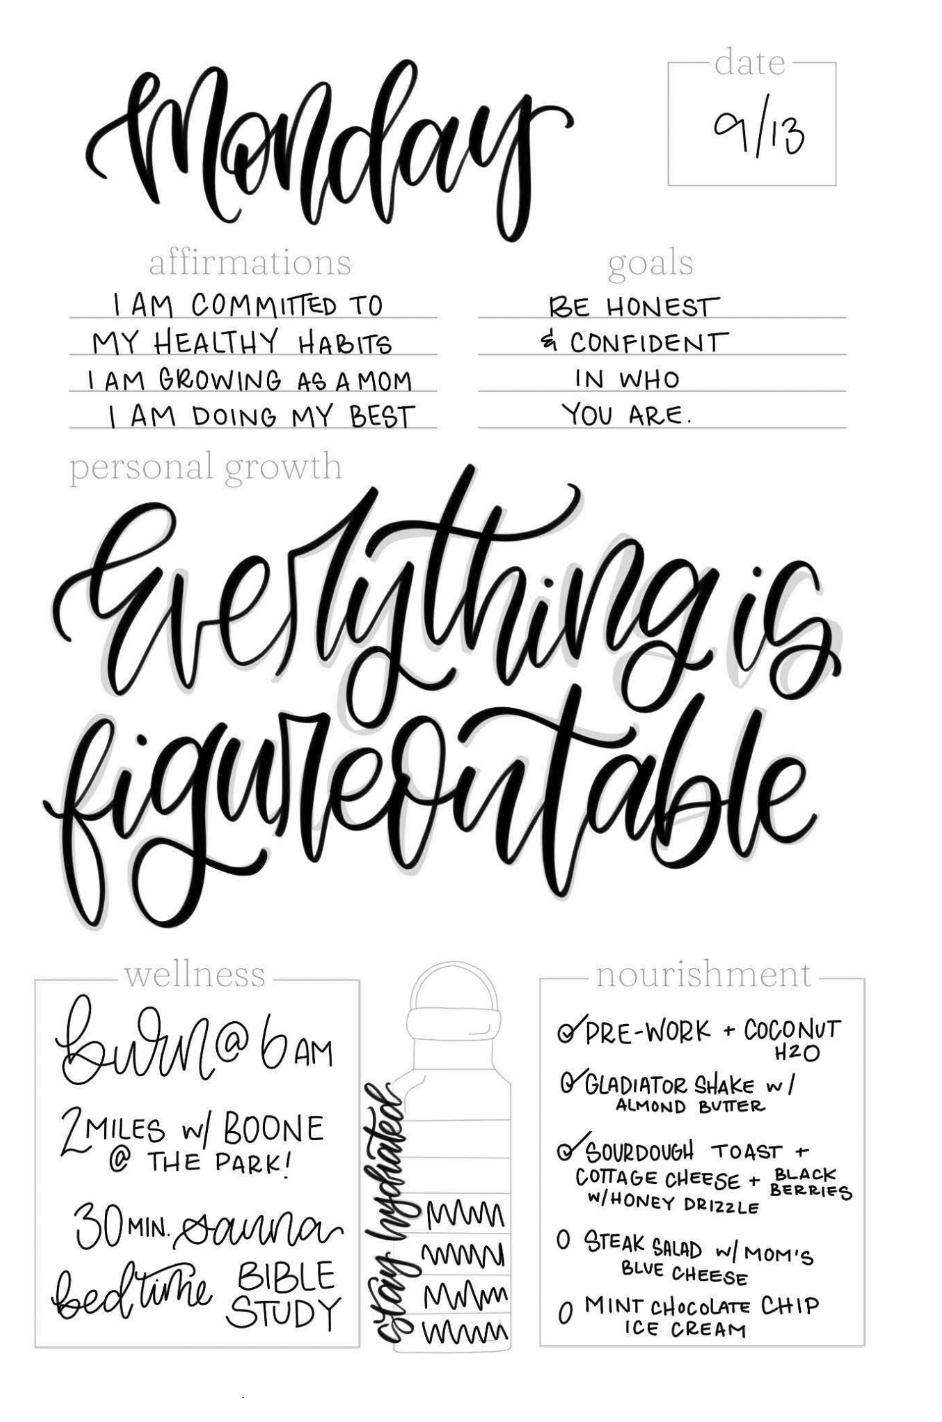 Monday
date
9/13
affirmations
I AM COMMITTED TO
MY HEALTHY HABITS
I AM GROWING AS A MOM
I AM DOING MY BEST
goals
BE HONEST
& CONFIDENT
IN WHO
YOU ARE.
personal growth
Everything is
figureoutable
wellness
burn @ 6 AM
2 MILES w/ BOONE
@ THE PARK!
30 MIN. sauna
bedtime BIBLE
STUDY
stay hydrated
nourishment
PRE-WORK + COCONUT
H2O
GLADIATOR SHAKE w/
ALMOND BUTTER
SOURDOUGH TOAST +
COTTAGE CHEESE + BLACK
BERRIES
W/HONEY DRIZZLE
STEAK SALAD w/ MOM'S
BLUE CHEESE
MINT CHOCOLATE CHIP
ICE CREAM